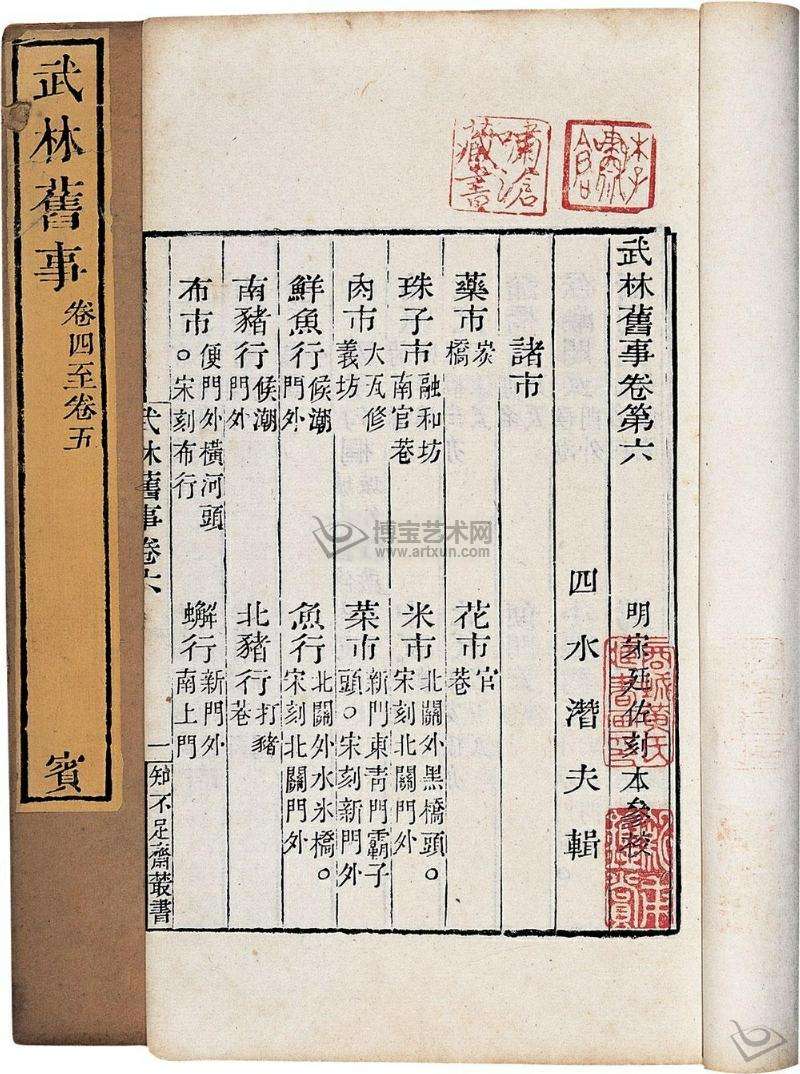 武林舊事卷四至卷五
賓
嘯滄藏書
武林舊事卷第六 明宋廷佐刻本參校
四水潛夫輯
諸市
藥市炭橋 花市官巷
珠子市融和坊南官巷 米市北關外黑橋頭。宋刻北關門外
肉市大瓦修義坊 菜市新門東青門霸子頭。宋刻新門外
鮮魚行候潮門外 魚行北關外水氷橋。宋刻北關門外
南豬行候潮門外 北豬行打豬巷
布市便門外橫河頭。宋刻布行 蠏行新門外南上門
武林舊事卷六 一 知不足齋叢書
博宝艺术网
www.artxun.com